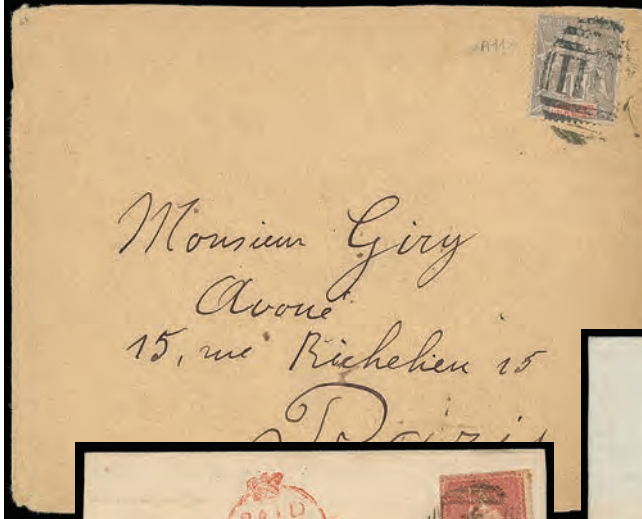 Monsieur Giry
Avoué
15, rue Richelieu 15
Paris
PAID